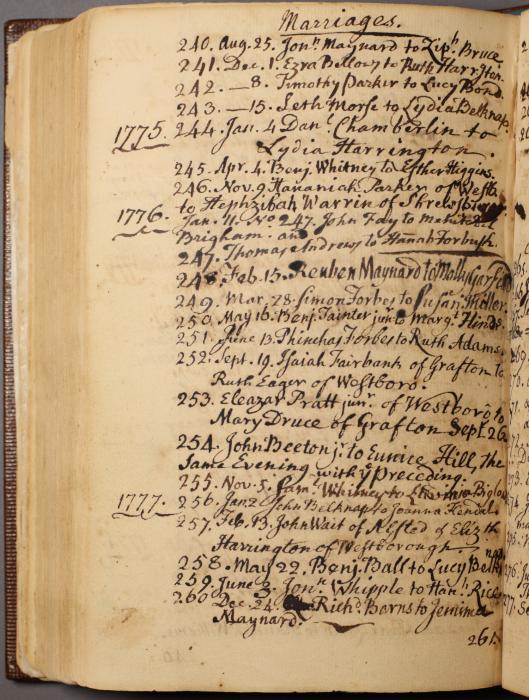 Marriages.
240. Aug. 25. Jonn. Maynard to Ziph. Bruce
241. Dec. 1. Ezra Bellows to Ruth Harrgton.
242. — 8. Timothy Parker to Lucy Bond
243. — 15. Seth Morse to Lydia Belknap
1775. 244. Jan. 4 Danl. Chamberlin to
Lydia Harrington.
245. Apr. 4. Benj. Whitney to Esther Higgins.
246. Nov. 9 Hananiah Parker of Westb.
to Hephzibah Warrin of Shrewsbury
1776. Jan. 11. No 247. John Fay to
Brigham. and
247. Thomas Andrews to Hannah Forbush.
248 Feb. 15. Reuben Maynard to Molly
249. Mar. 28. Simon Forbes to Susan
250 May 16. Benj. Tainter junr. to Margt. Hinds.
251. June 13. Phinehas Forbes to Ruth Adams
252. Sept. 19. Isaiah Fairbank of Grafton to
Ruth Eager of Westboro.
253. Eleazar Pratt junr. of Westboro to
Mary Druce of Grafton Sept. 26
254. John Beeton jr. to Eunice Hill, the
Same Evening with ye preceding.
255. Nov. 5. Saml. Whitney to Biglow
1777. 256. Jan 2 John Belknap to Joanna Kendal
257. Feb. 13. John Wait of Alsted & Elizth
Harrington of Westborough
258. May 22. Benj. Ball to Lucy
259. June 3. Jonn. Whipple to Hanh. Rice
260 Dec. 24 Richd. Barns to Jemima
Maynard.
261.